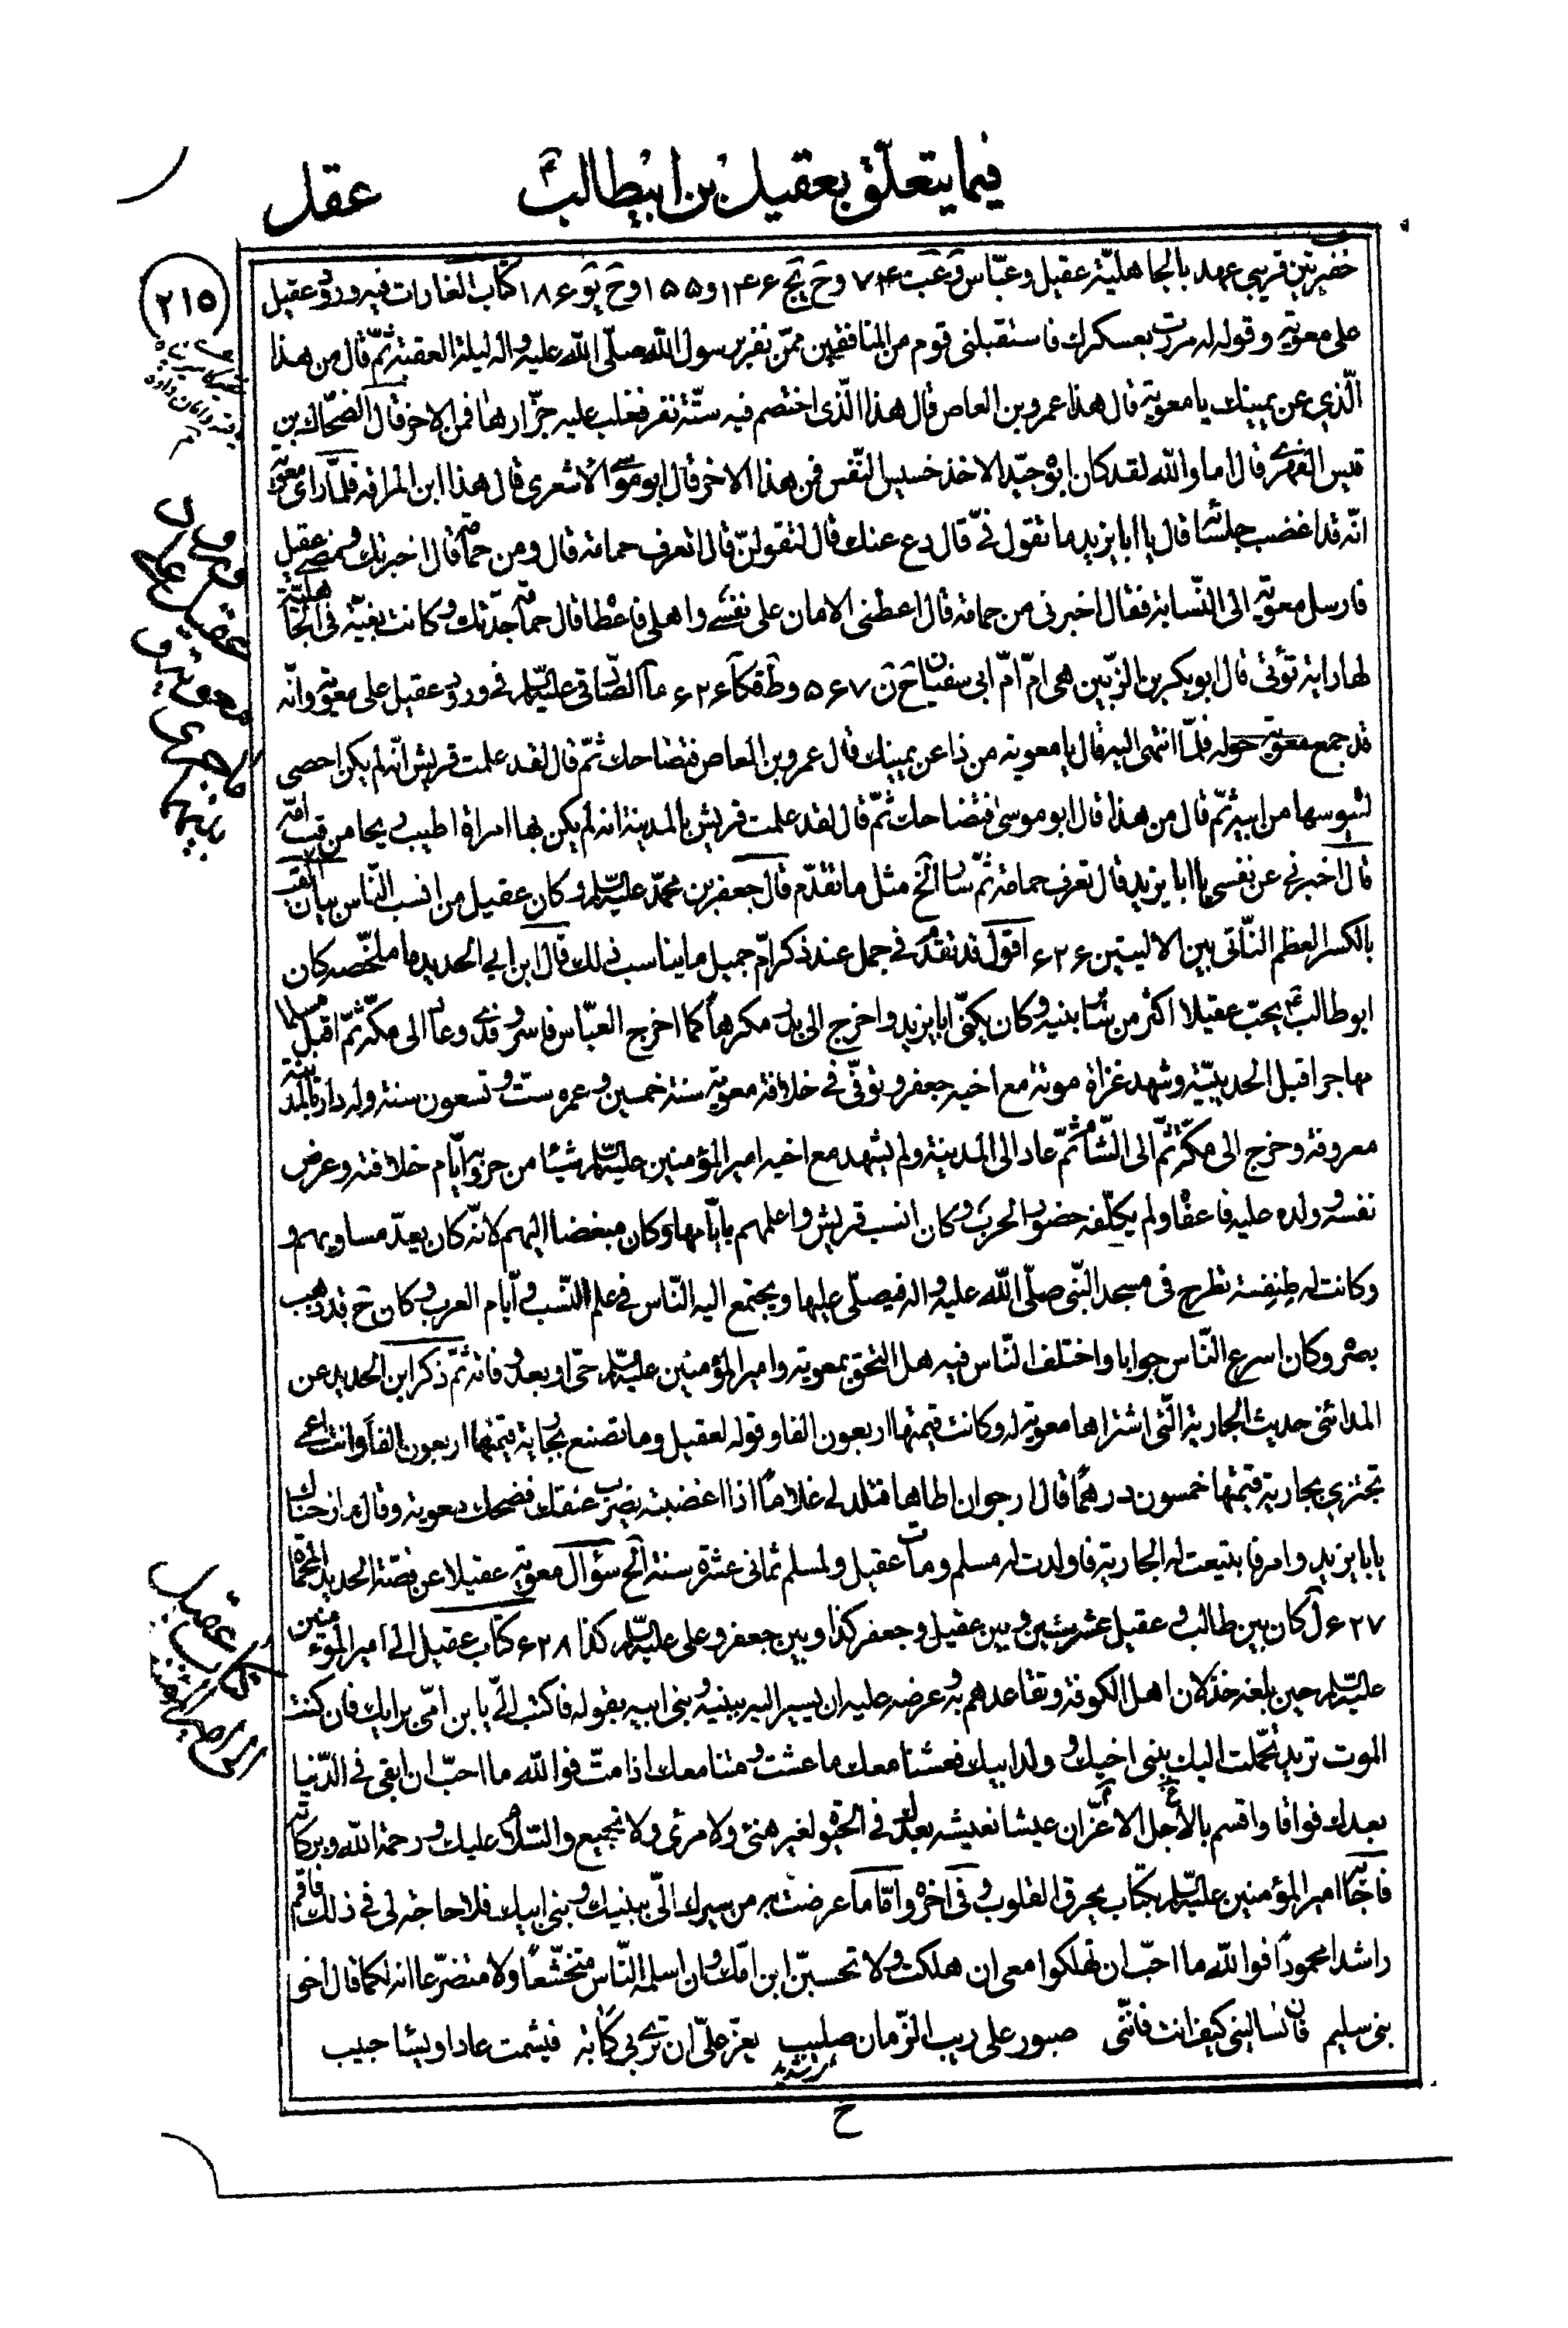 فيما يتعلّق بعقيل بن ابيطالب ع
عقل
٢١٥
خفيرتين قريبي عهد بالجاهليّة عقيل وعبّاس وَ عَب ٧۴ وحَ يَج ١۴۶ و١٥٥ وحَ يَو ١٨۶ كتاب الغارات فيه ورود عقيل
على معوية وقوله له مررت بعسكرك فاستقبلني قوم من المنافقين ممّن نفر برسول الله صلّى الله عليه واله ليلة العقبة ثمّ قال من هذا
الّذي عن يمينك يا معوية قال هذا عمرو بن العاص قال هذا الّذى اختصم فيه ستّة نفر فغلب عليه جزّارها فمن الاخر قال الضحّاك بن
قيس الفهرى قال اما والله لقد كان ابوه جيّد الاخذ خسيس النّفس فمن هذا الاخر قال ابو موسى الاشعرى قال هذا ابن المراقه فلمّا راى معوية
انّه قد اغضب جلسائه قال يا ابا يزيد ما تقول فىّ قال دع عنك قال لتقولنّ قال اتعرف حمامة قال ومن حمامة قال اخبرتك ومضى عقيل
فارسل معوية الى النّسابة فقال اخبرني من حمامة قال اعطنى الامان على نفسى واهلى فاعطاه قال حمامة جدّتك وكانت بغيّة فى الجاهليّة
لها راية تؤتى قال ابو بكر بن الزّبين هى امّ امّ ابى سفيان حَ نَ ٥۶٧ وطَ قكاَ ۶٢۶ ما الصّادق عليه السّلم فى ورود عقيل على معوية وانّه
قد جمع معوية حوله فلمّا انتهى اليه قال يا معوية من ذا عن يمينك قال عمرو بن العاص فتضاحك ثمّ قال لقد علمت قريش انّه لم يكن احصى
لتيوسها من ابيه ثمّ قال من هذا قال ابو موسى فتضاحك ثمّ قال لقد علمت قريش بالمدينة انه لم يكن بها امراة اطيب ريحا من قب امّه
قال اخبرنى عن نفسى يا ابا يزيد قال تعرف حمامة ثمّ سار الخ مثل ما تقدّم قال جعفر بن محمّد عليه السّلم وكان عقيل من انسب النّاس بيان القب
بالكسر العظم النّاتى بين الاليتين ۶٢۶ اقول قد تقدّم فى جمل عند ذكر امّ جميل ما يناسب ذلك قال ابن ابي الحديد ما ملخّصه كان
ابو طالب ع يحبّ عقيلا اكثر من سائر بنيه وكان يكنّى ابا يزيد واخرج الى بدر مكرها كما اخرج العبّاس فاسر وفدى وعاد الى مكّة ثمّ اقبل مسلما
مهاجرا قبل الحديبيّة وشهد غزاة موتة مع اخيه جعفر وتوفّى فى خلافة معوية سنة خمسين وعمره ستّ وتسعون سنة وله دار بالمدينة
معروفة وخرج الى مكّة ثمّ الى الشّام ثمّ عاد الى المدينة ولم يشهد مع اخيه امير المؤمنين عليه السّلم شيئا من حروبه ايّام خلافته وعرض
نفسه وولده عليه فاعفاه ولم يكلّفه حضور الحرب وكان انسب قريش واعلمهم بايّامها وكان مبغضا اليهم لانّه كان يعدّ مساويهم و
وكانت له طنفسة تطرح فى مسجد النّبى صلّى الله عليه واله فيصلّى عليها ويجتمع اليه النّاس فى علم النّسب وايّام العرب وكان ح قد ذهب
بصره وكان اسرع النّاس جوابا واختلف النّاس فيه هل التحق بمعوية وامير المؤمنين عليه السّلم حىّ او بعد وفاته ثمّ ذكر ابن الحديد عن
المدائنى حديث الجارية الّتى اشتراها معوية له وكانت قيمتها اربعون الفا وقوله لعقيل وما تصنع بجارية قيمتها اربعون الفاً وانت اعمى
تجتزي بجارية قيمتها خمسون درهماً قال ارجو ان اطاها فتلد لى غلاماً اذا اغضبته يضرب عنقك فضحك معوية وقال مازحناك
يا با يزيد وامر فابتيعت له الجارية فاولدت له مسلم ومات عقيل ولمسلم ثمانى عشرة سنة الخ سؤال معوية عقيلا عن قصّة الحديدة المحماة
۶٢٧ ل كان بين طالب وعقيل عشر سنين وبين عقيل وجعفر كذا وبين جعفر وعلى عليه السّلم كذا ۶٢٨ كتاب عقيل الى امير المؤمنين
عليه السّلم حين بلغه خذلان اهل الكوفة وتقاعدهم به وعرضه عليه ان يسير اليه ببنيه وبنى ابيه بقوله فاكتب الىّ يا بن امّى برايك فان كنت
الموت تريد تحمّلت اليك ببنى اخيك وولد ابيك فعشنا معك ما عشت ومتنا معك اذا متّ فوالله ما احبّ ان ابقى فى الدّنيا
بعدك فواقا واقسم بالاعزّ الاجل ان عيشا نعيشه بعدك فى الحيوة لغير هنئ ولا مرئ ولا نجيع والسّلام عليك ورحمة الله وبركاته
فاجابه امير المؤمنين عليه السّلم بكتاب يحرق القلوب وفى اخره وامّا ما عرضت به من سيرك الىّ ببنيك وبنى ابيك فلا حاجة لى فى ذلك فاقم
راشدا محموداً فوالله ما احبّ ان تهلكوا معى ان هلكت ولا تحسبنّ ابن امّك وان اسلمه النّاس متخشّعاً ولا متضرّعا انه لكما قال اخو
بنى سليم فان تسالينى كيف انت فانّنى صبور على ريب الزّمان صليب يعزّ علىّ ان ترى بى كآبة فيشمت عاد او يساء حبيب
ورود
عقيل على
معوية و
ما جرى
بينهما
كتاب عقيل
الى امير المؤمنين
ح